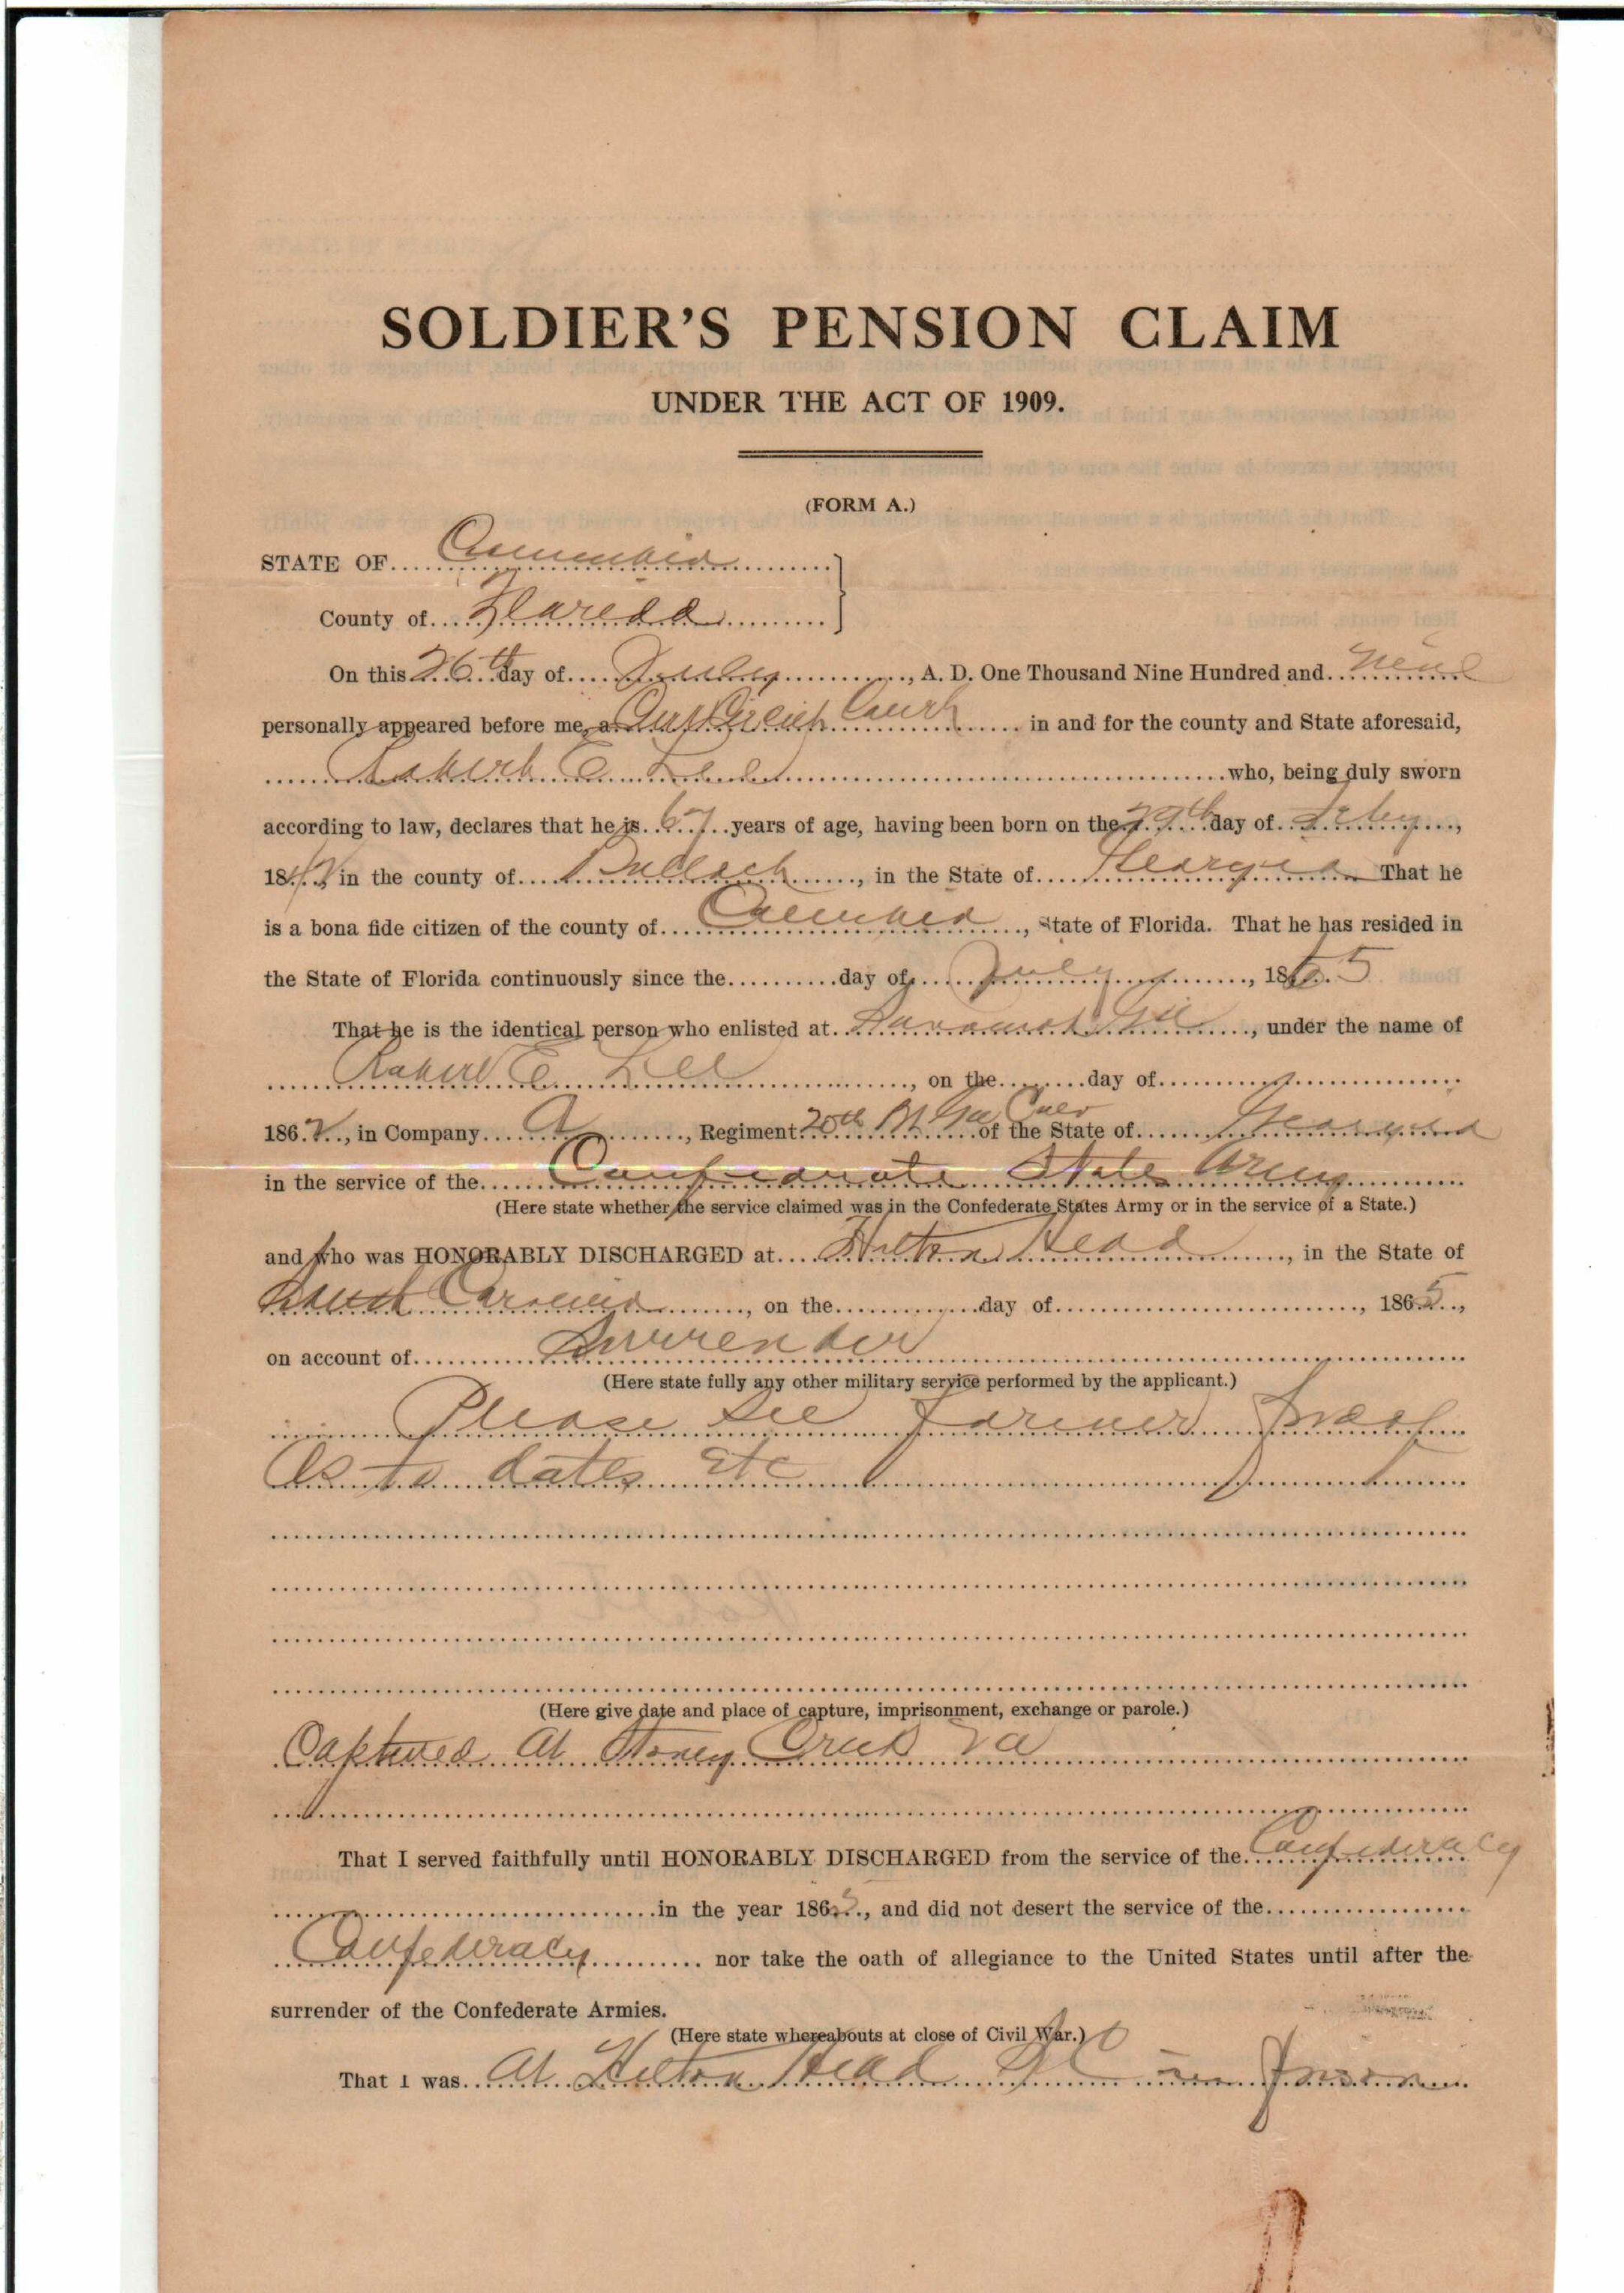 SOLDIER'S PENSION CLAIM
UNDER THE ACT OF 1909.
(FORM A.)
STATE OF Columbia
County of Florida
On this 26th day of July, A. D. One Thousand Nine Hundred and nine
personally appeared before me, a Clerk Circuit Court in and for the county and State aforesaid,
Robert E. Lee who, being duly sworn
according to law, declares that he is 67 years of age, having been born on the day of
1842 in the county of Bulloch, in the State of Georgia That he
is a bona fide citizen of the county of Columbia, State of Florida. That he has resided in
the State of Florida continuously since the day of July, 1865
That he is the identical person who enlisted at Savannah Ga, under the name of
Robert E. Lee, on the day of
1862, in Company A, Regiment 20th Bt Ga Calv of the State of Georgia
in the service of the Confederate State Army
(Here state whether the service claimed was in the Confederate States Army or in the service of a State.)
and who was HONORABLY DISCHARGED at Hilton Head, in the State of
South Carolina, on the day of, 1865,
on account of Surrender
(Here state fully any other military service performed by the applicant.)
Please see former proof
As to dates Etc
(Here give date and place of capture, imprisonment, exchange or parole.)
Captured At Stoney Creek Va
That I served faithfully until HONORABLY DISCHARGED from the service of the Confederacy
in the year 1865, and did not desert the service of the
Confederacy nor take the oath of allegiance to the United States until after the
surrender of the Confederate Armies.
(Here state whereabouts at close of Civil War.)
That I was At Hilton Head SC in prison